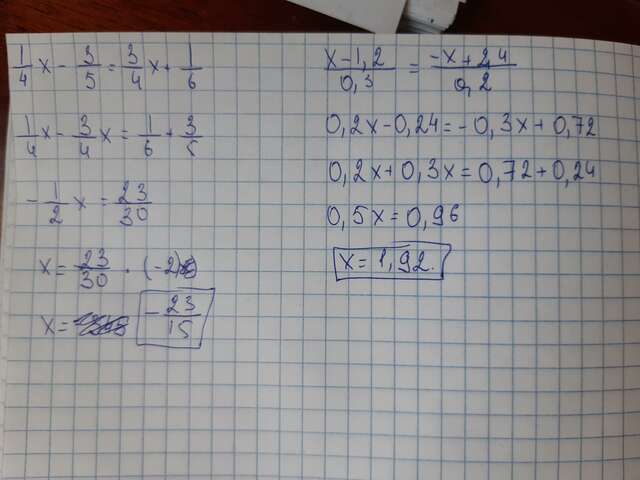 1/4 x - 3/5 = 3/4 x + 1/6
1/4 x - 3/4 x = 1/6 + 3/5
- 1/2 x = 23/30
x = 23/30 · (-2)
x = - 23/15
x-1,2/0,3 = -x+2,4/0,2
0,2x-0,24=-0,3x+0,72
0,2x+0,3x=0,72+0,24
0,5x=0,96
x=1,92.